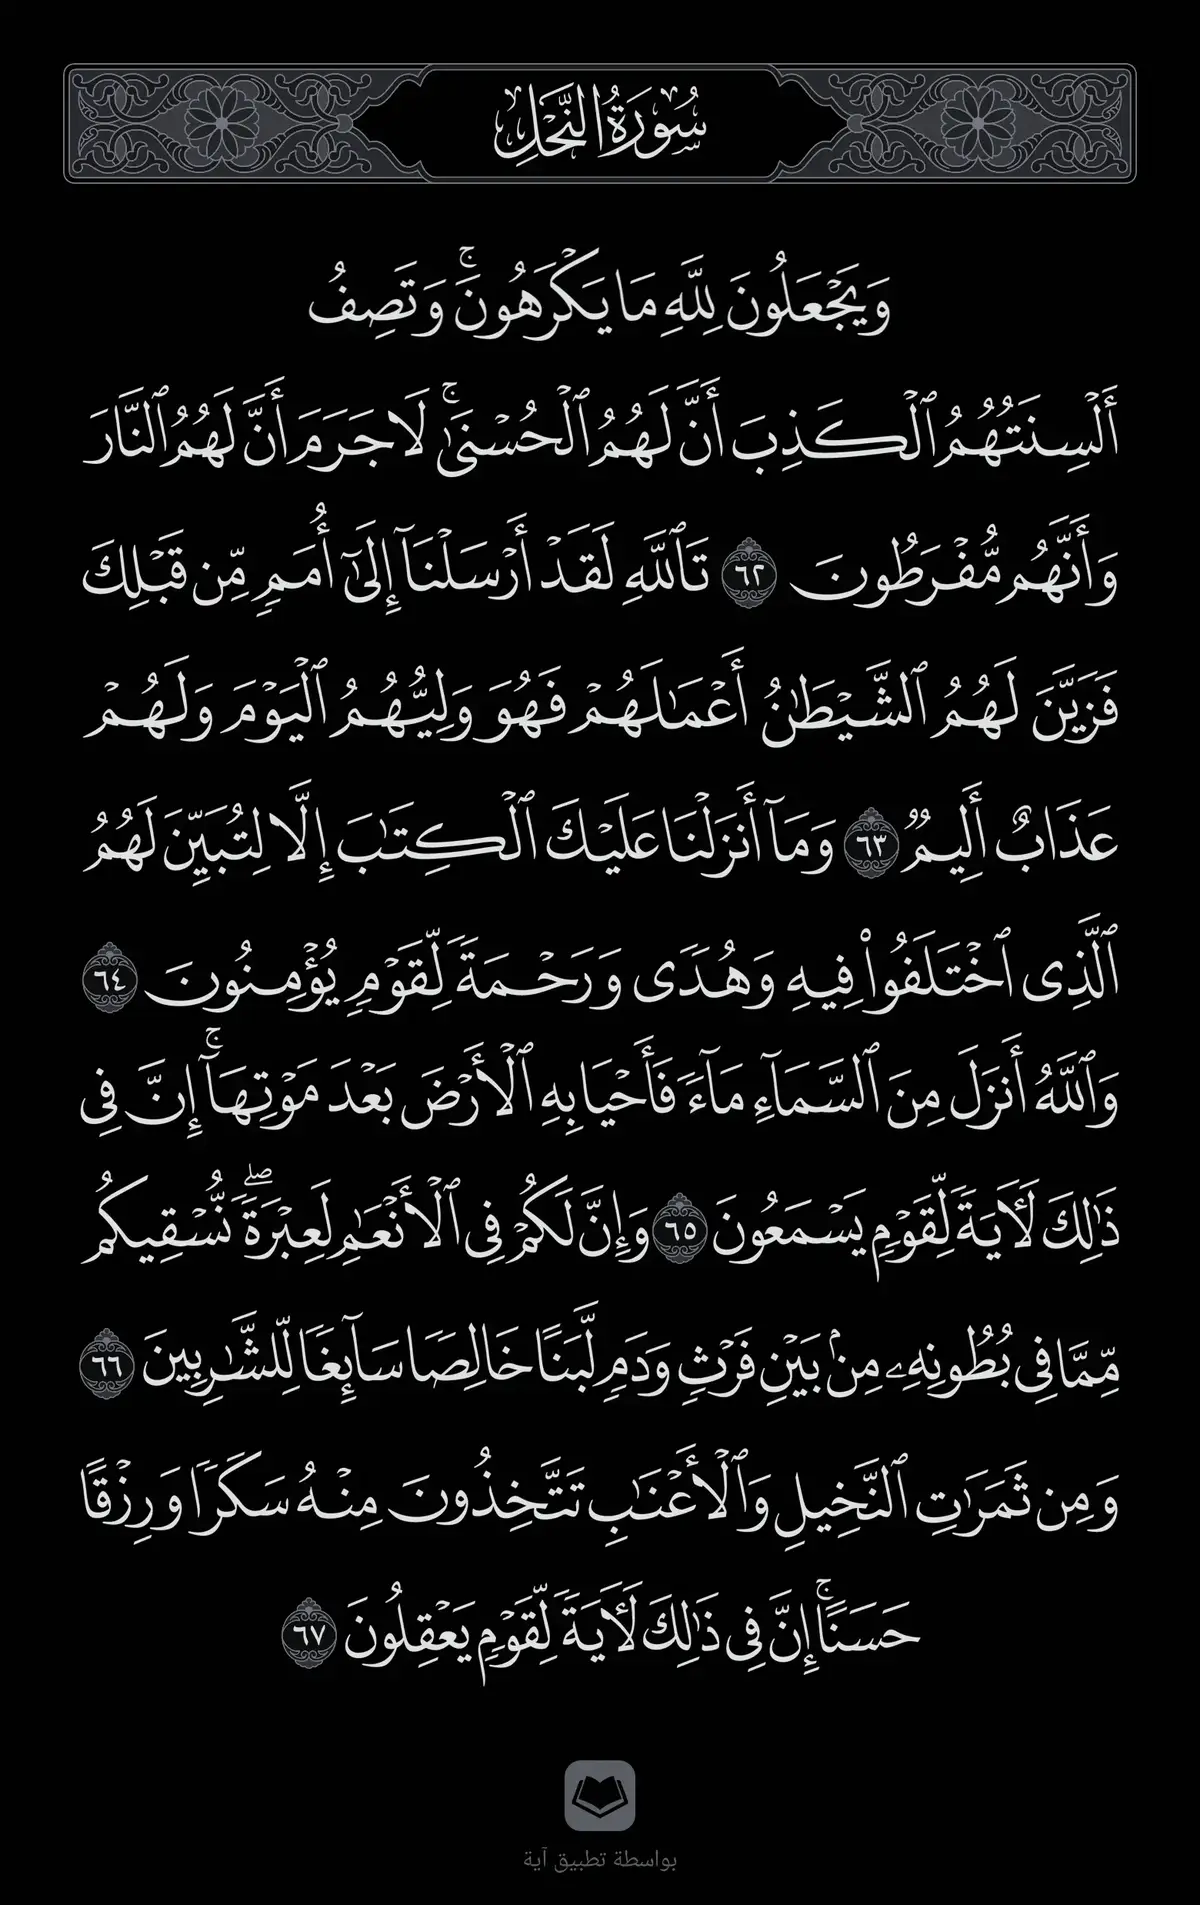 سُورَةُ النَّحْلِ
وَيَجْعَلُونَ لِلَّهِ مَا يَكْرَهُونَۚ وَتَصِفُ
أَلْسِنَتُهُمُ ٱلْكَذِبَ أَنَّ لَهُمُ ٱلْحُسْنَىٰۚ لَا جَرَمَ أَنَّ لَهُمُ ٱلنَّارَ
وَأَنَّهُم مُّفْرَطُونَ ٦٢ تَٱللَّهِ لَقَدْ أَرْسَلْنَآ إِلَىٰٓ أُمَمٍ مِّن قَبْلِكَ
فَزَيَّنَ لَهُمُ ٱلشَّيْطَٰنُ أَعْمَٰلَهُمْ فَهُوَ وَلِيُّهُمُ ٱلْيَوْمَ وَلَهُمْ
عَذَابٌ أَلِيمٌ ٦٣ وَمَآ أَنزَلْنَا عَلَيْكَ ٱلْكِتَٰبَ إِلَّا لِتُبَيِّنَ لَهُمُ
ٱلَّذِى ٱخْتَلَفُوا۟ فِيهِ وَهُدًى وَرَحْمَةً لِّقَوْمٍ يُؤْمِنُونَ ٦٤
وَٱللَّهُ أَنزَلَ مِنَ ٱلسَّمَآءِ مَآءً فَأَحْيَا بِهِ ٱلْأَرْضَ بَعْدَ مَوْتِهَآۚ إِنَّ فِى
ذَٰلِكَ لَءَايَةً لِّقَوْمٍ يَسْمَعُونَ ٦٥ وَإِنَّ لَكُمْ فِى ٱلْأَنْعَٰمِ لَعِبْرَةًۖ نُّسْقِيكُم
مِّمَّا فِى بُطُونِهِۦ مِنۢ بَيْنِ فَرْثٍ وَدَمٍ لَّبَنًا خَالِصًا سَآئِغًا لِّلشَّٰرِبِينَ ٦٦
وَمِن ثَمَرَٰتِ ٱلنَّخِيلِ وَٱلْأَعْنَٰبِ تَتَّخِذُونَ مِنْهُ سَكَرًا وَرِزْقًا
حَسَنًاۚ إِنَّ فِى ذَٰلِكَ لَءَايَةً لِّقَوْمٍ يَعْقِلُونَ ٦٧
بواسطة تطبيق آية